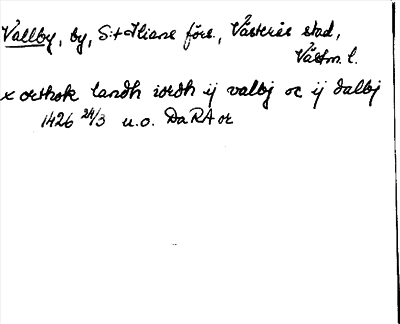 Vallby, by, S:t Iliane förs., Västerås stad,
Västm. l.
x ørthok landh iordh ij valbj oc ij dalbj
1426 24/3 u.o. DaRA or